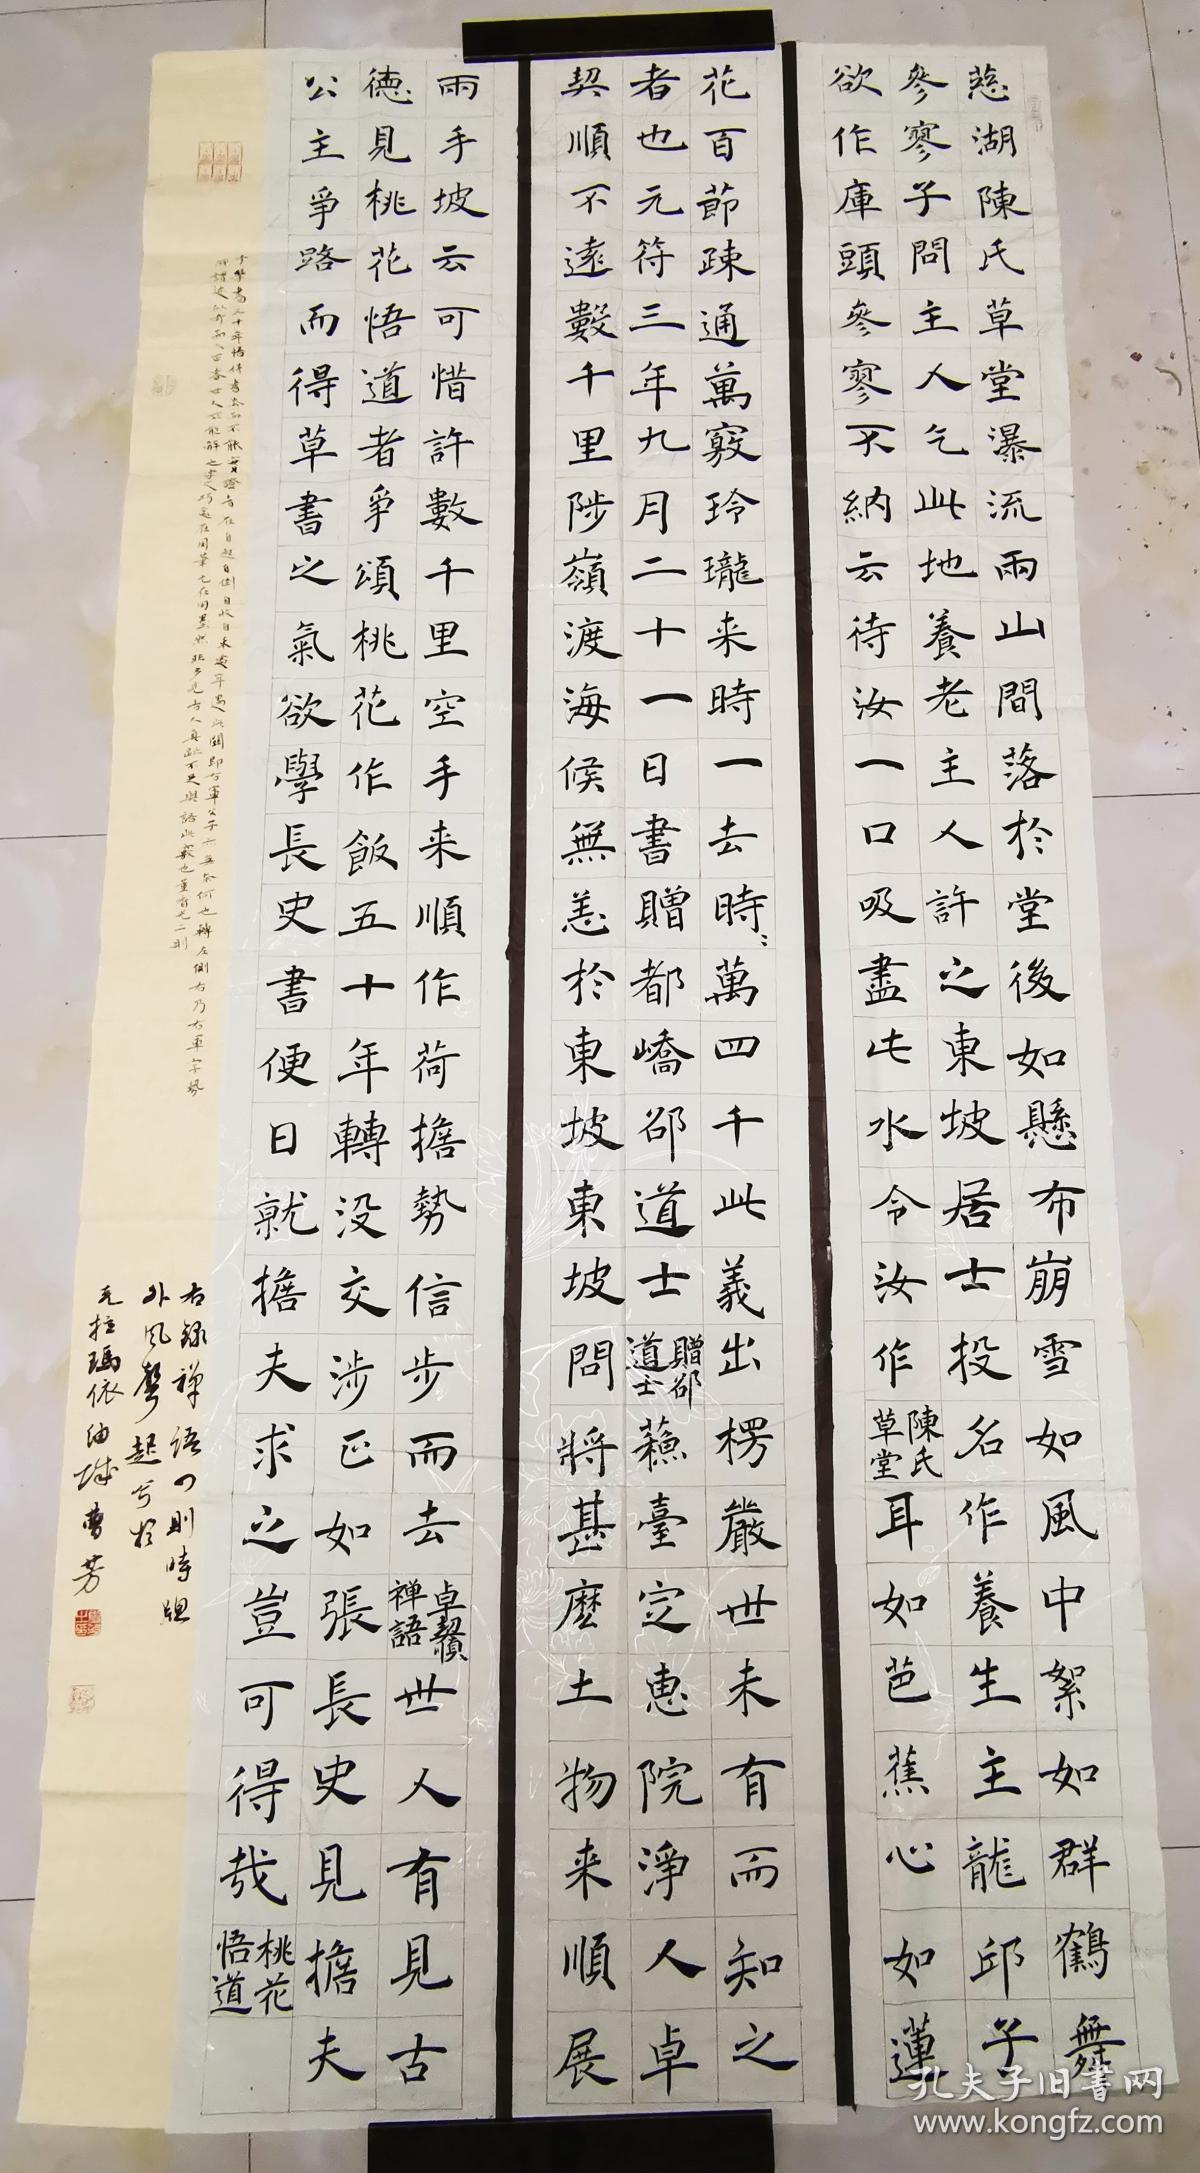 慈湖陳氏草堂瀑流兩山間落於堂後如懸布崩雪如風中絮如群鶴舞
參寥子問主人乞此地養老主人許之東坡居士投名作養生主龍邱子
欲作庫頭參寥不納云待汝一口吸盡此水令汝作陳氏草堂耳如芭蕉心如蓮
花百節疎通萬竅玲瓏来時一去時〻萬四千此義出楞嚴世未有而知之
者也元符三年九月二十一日書贈都嶠邵道士贈邵道士蘓臺定惠院淨人卓
契順不遠數千里陟嶺渡海候無恙於東坡東坡問將甚麽土物来順展
兩手坡云可惜許數千里空手来順作荷擔勢信步而去卓契順禅語世人有見古
德見桃花悟道者爭頌桃花作飯五十年轉没交涉正如張長史見擔夫
公主爭路而得草書之氣欲學長史書便日就擔夫求之豈可得哉桃花悟道
右錄禅語四則時
外風聲起兮於
克拉瑪依油城曹芳
孔夫子旧書网
www.kongfz.com